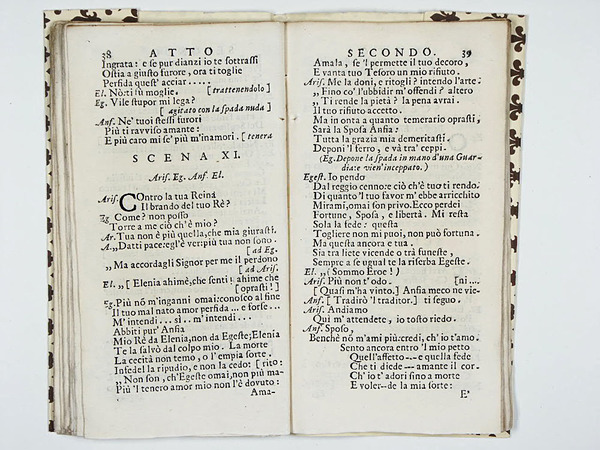 38 ATTO
Ingrata: e se pur dianzi io te sottrassi
Ostia a giusto furore, ora ti toglie
Perfida quest' acciar .....
El. Nò: ti sù moglie. [trattenendolo]
Eg. Vile stupor mi lega?
[agitato con la spada nuda]
Anf. Ne' tuoi stessi furori
Più ti ravviso amante:
E più caro mi se' più m'inamori. [tenera
SCENA XI.
Arif. Eg. Anf. El.
Arif. COntro la tua Reina
Il brando del tuo Rè?
Eg. Come? non posso
Torre a me ciò ch'è mio?
Ar. Tua non è più quella, che mia giurasti.
A. „Datti pace: egl'è ver: più tua non sono.
[ad Eg.
„Ma accordagli Signor per me il perdono
[ad Arif.
El. „[Elenia ahimè, che senti! ahime che
[oprasti!]
Eg. Più nō m'inganni omai: conosco al fine
Il tuo mal nato amor perfida ... e forse ...
M' intendi ... sì .. m' intendi ...
Abbiti pur' Anfia
Mio Rè da Elenia, non da Egeste; Elenia
Te la salvò dal colpo mio. La morte
La cecità non temo, o l'empia sorte.
Infedel la ripudio, e non la cedo: [rito:
„Non son, ch'Egeste omai, non più ma-
Più 'l tenero amor mio non l'è dovuto:
Ama-
SECONDO. 39
Amala, se 'l permette il tuo decoro,
E vanta tuo Tesoro un mio rifiuto.
Arif. Me la doni, e ritogli? intendo l'arte:
„Fino co' l'ubbidir m'offendi? altero
„Ti rende la pietà? la pena avrai.
Il tuo rifiuto accetto.
Ma in onta a quanto temerario oprasti,
Sarà la Sposa Anfia:
Tutta la grazia mia demeritasti.
Deponi 'l ferro, e và tra' ceppi.
(Eg. Depone la spada in mano d'una Guar-
dia: e vien' inceppato.)
Egest. Io pendo
Dal reggio cenno: e ciò ch'è tuo ti rendo.
Di quanto 'l tuo favor m'ebbe arricchito
Mirami, omai son privo. Ecco perdei
Fortune, Sposa, e libertà. Mi resta
Sola la fede: questa
Togliere non mi puoi, non può fortuna.
Ma questa ancora e tua.
Sia tra liete vicende o trà funeste,
Sempre a se ugual te la riserba Egeste.
El. „(Sommo Eroe!)
Arif. Più non t'odo. [ni....
[Quasi m'ha vinto.] Anfia meco ne vie-
Anf. [Tradirò 'l traditor.] ti seguo.
Arif. Andiamo
Quì m' attendete, io tosto riedo.
Anf. Sposo,
Benchè nō m'ami più: credi, ch'io t'amo.
Sento ancora entro 'l mio petto
Quell'affetto -- e quella fede
Che ti diede -- amante il cor.
Ch' io t' adori sino a morte
E voler -- de la mia sorte:
E'